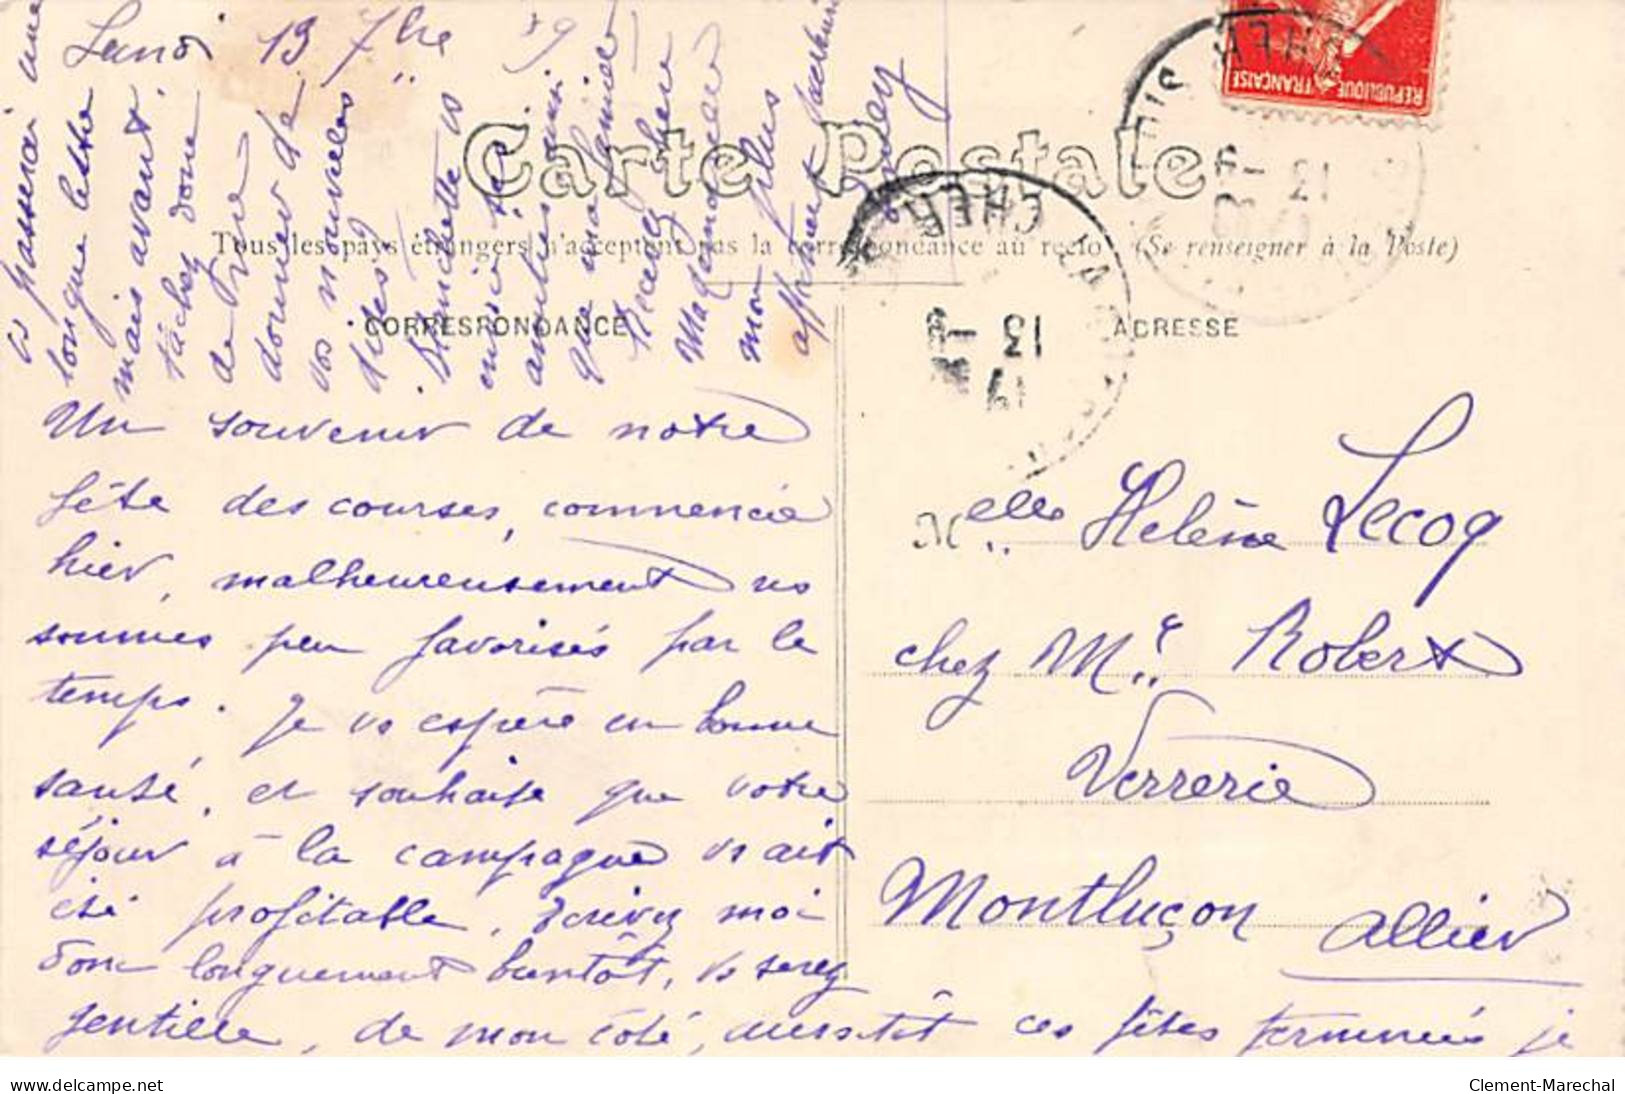 Lundi 13 7bre 09
Carte Postale
Tous les pays étrangers n'acceptent pas la correspondance au recto (Se renseigner à la Poste)
CORRESPONDANCE
ADRESSE
REPUBLIQUE FRANÇAISE
CHER
13 -9
CHER
13 -9
Un souvenir de notre
fête des courses, commencée
hier, malheureusement ns
sommes peu favorisés par le
temps. Je vs espère en bonne
santé, et souhaite que votre
séjour à la campagne vs ait
été profitable, Ecrivez moi
donc longuement bientôt, vs serez
gentille, de mon côté, aussitôt ces fêtes terminées je
vs passerai une
longue lettre
mais avant,
tâchez donc
de me
donner de
vos nouvelles
dites
Blanchette vs
envoie ses
amitiés ainsi
que ma famille
Recevez chère
Mademoiselle
mon plus
affectueux
Melle Helène Lecoq
chez Mr Robert
Verrerie
Montluçon Allier
www.delcampe.net
Clement-Marechal